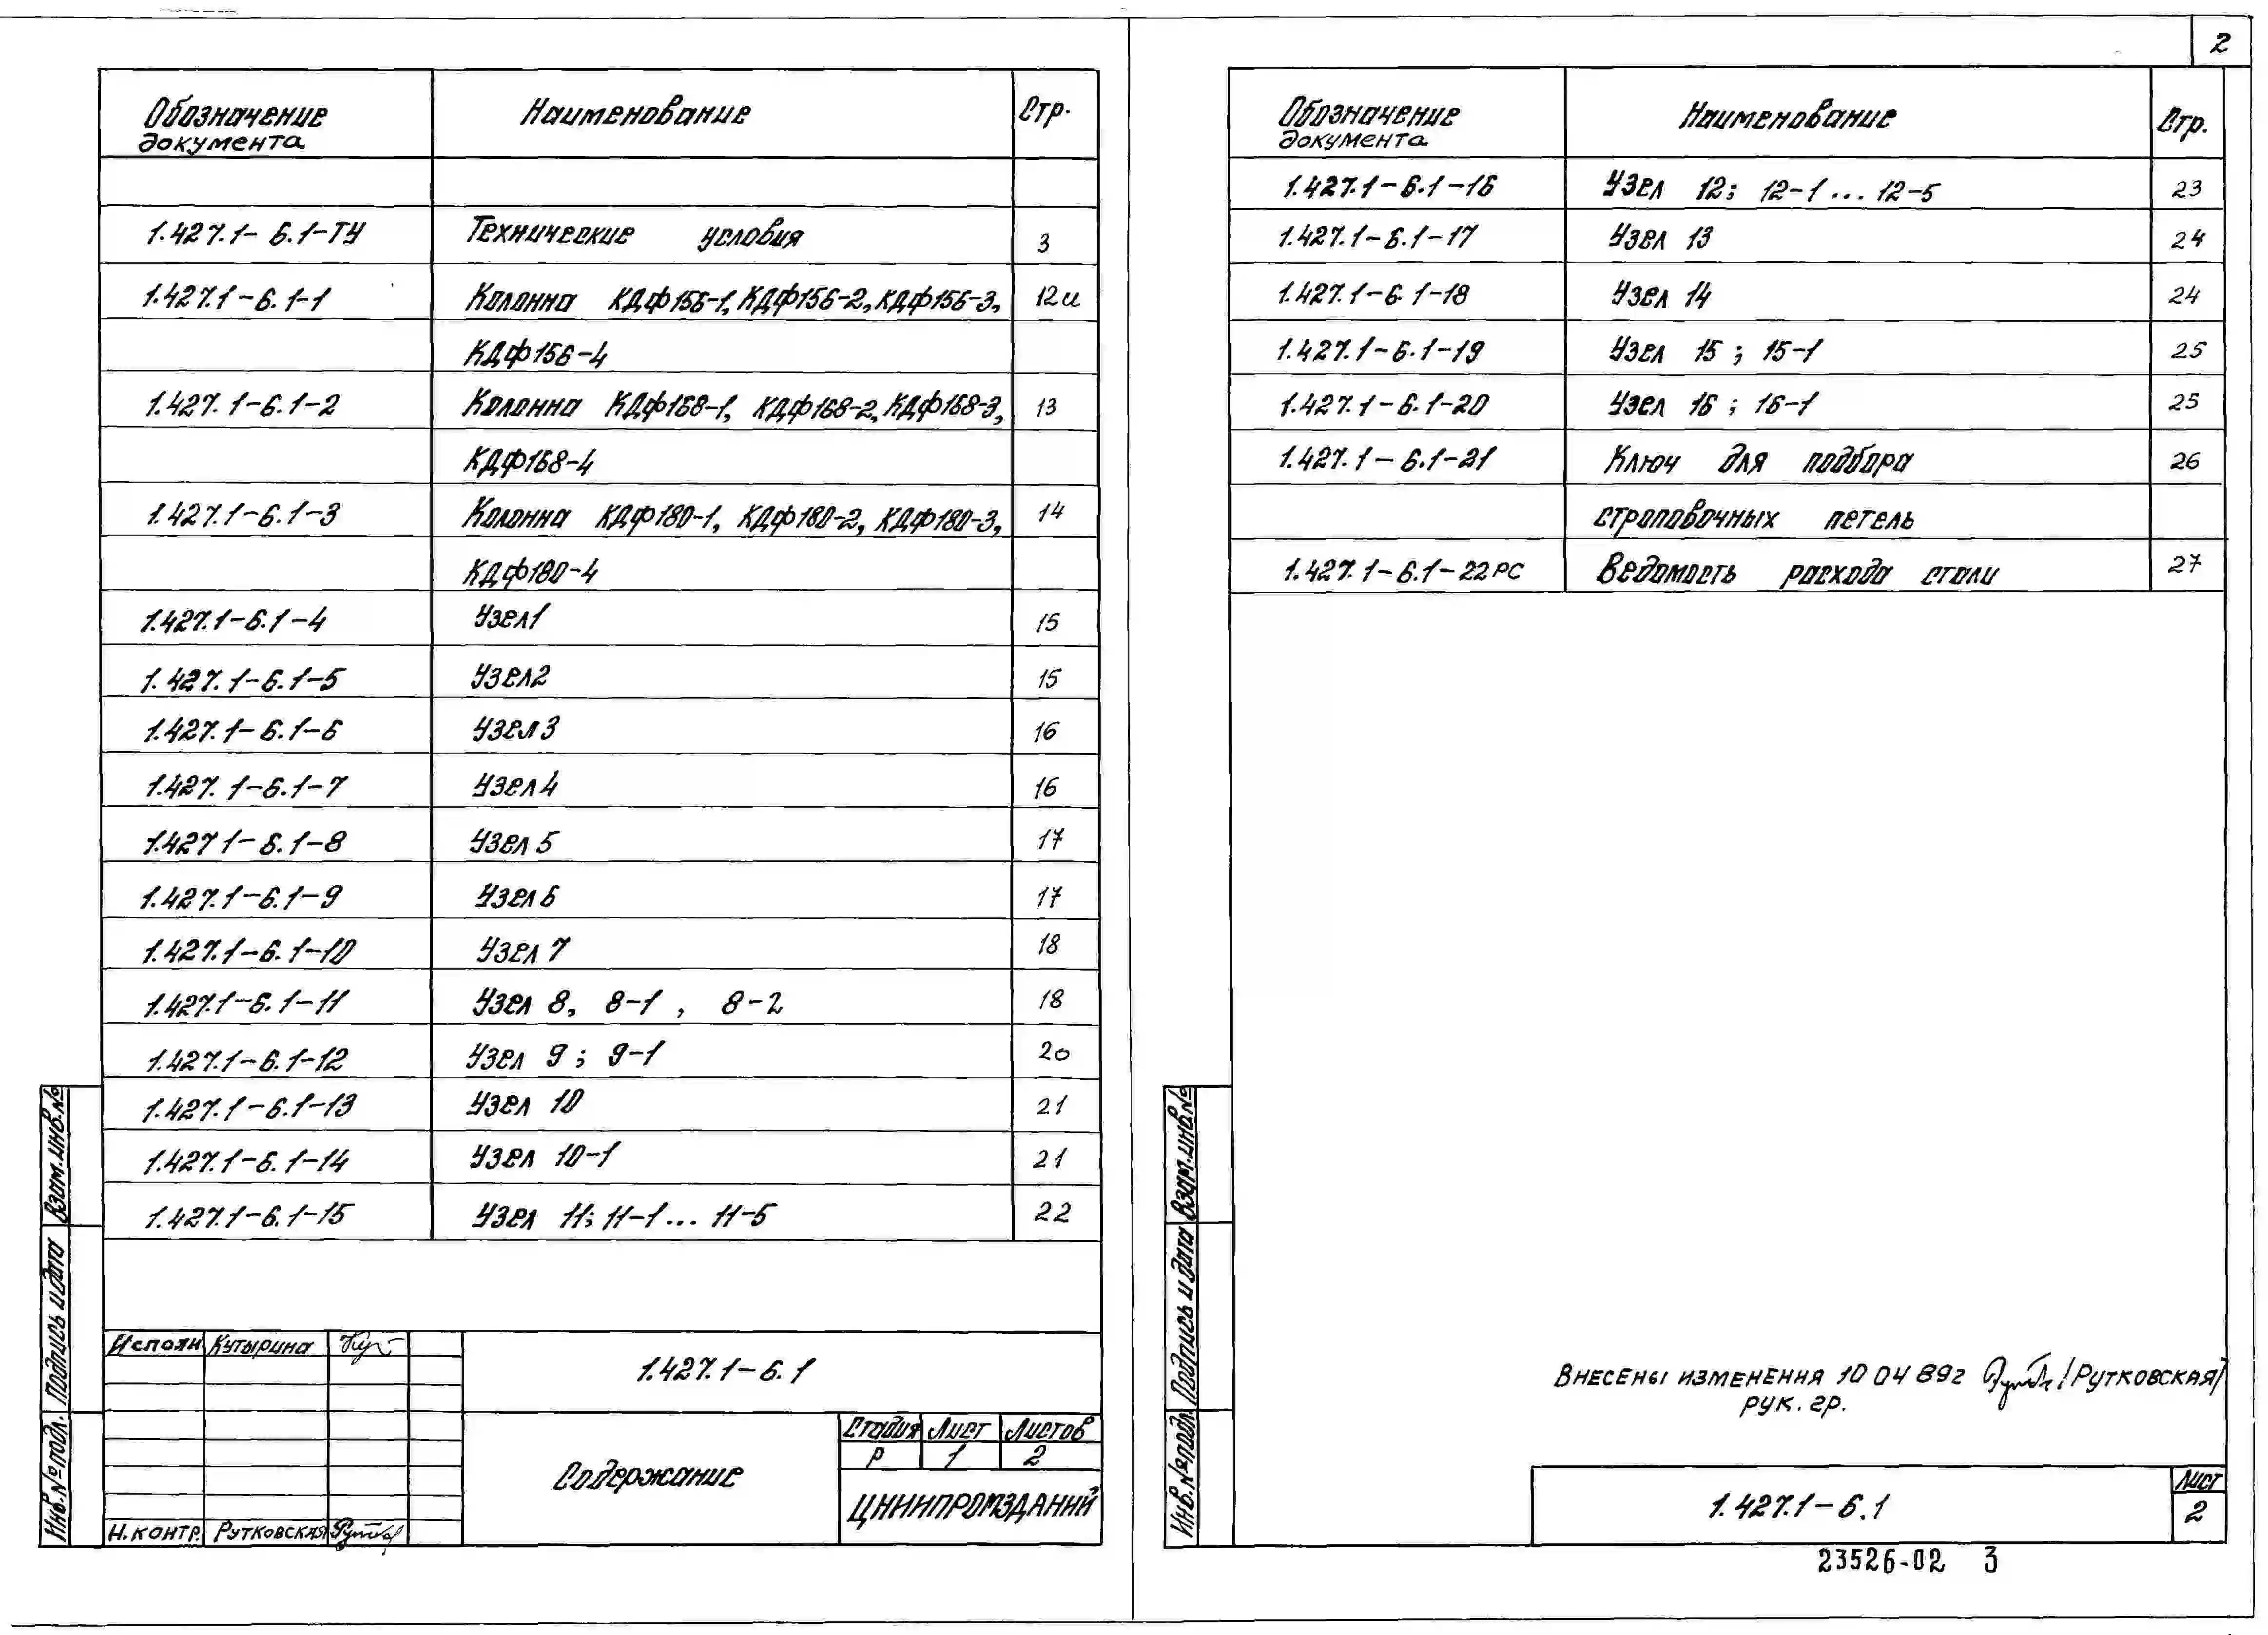 2
Обозначение документа Наименование Стр.
1.427.1-6.1-ТУ Технические условия 3
1.427.1-6.1-1 Колонна КДф156-1, КДф156-2, КДф156-3, 12и
КДф156-4
1.427.1-6.1-2 Колонна КДф168-1, КДф168-2, КДф168-3, 13
КДф168-4
1.427.1-6.1-3 Колонна КДф180-1, КДф180-2, КДф180-3, 14
КДф180-4
1.427.1-6.1-4 Узел 1 15
1.427.1-6.1-5 Узел 2 15
1.427.1-6.1-6 Узел 3 16
1.427.1-6.1-7 Узел 4 16
1.427.1-6.1-8 Узел 5 17
1.427.1-6.1-9 Узел 6 17
1.427.1-6.1-10 Узел 7 18
1.427.1-6.1-11 Узел 8, 8-1, 8-2 18
1.427.1-6.1-12 Узел 9; 9-1 20
1.427.1-6.1-13 Узел 10 21
1.427.1-6.1-14 Узел 10-1 21
1.427.1-6.1-15 Узел 11; 11-1... 11-5 22
Взам.инв.№
Подпись и дата
Инв.№ подл.
Исполн Кутырина
Н.контр. Рутковская
1.427.1-6.1
Содержание
Стадия Лист Листов
Р 1 2
ЦНИИПРОМЗДАНИЙ
Обозначение документа Наименование Стр.
1.427.1-6.1-16 Узел 12; 12-1... 12-5 23
1.427.1-6.1-17 Узел 13 24
1.427.1-6.1-18 Узел 14 24
1.427.1-6.1-19 Узел 15; 15-1 25
1.427.1-6.1-20 Узел 16; 16-1 25
1.427.1-6.1-21 Ключ для подбора 26
строповочных петель
1.427.1-6.1-22РС Ведомость расхода стали 27
Взам.инв.№
Подпись и дата
Инв.№ подл.
Внесены изменения 10 04 89г /Рутковская/
рук. гр.
1.427.1-6.1
Лист
2
23526-02 3